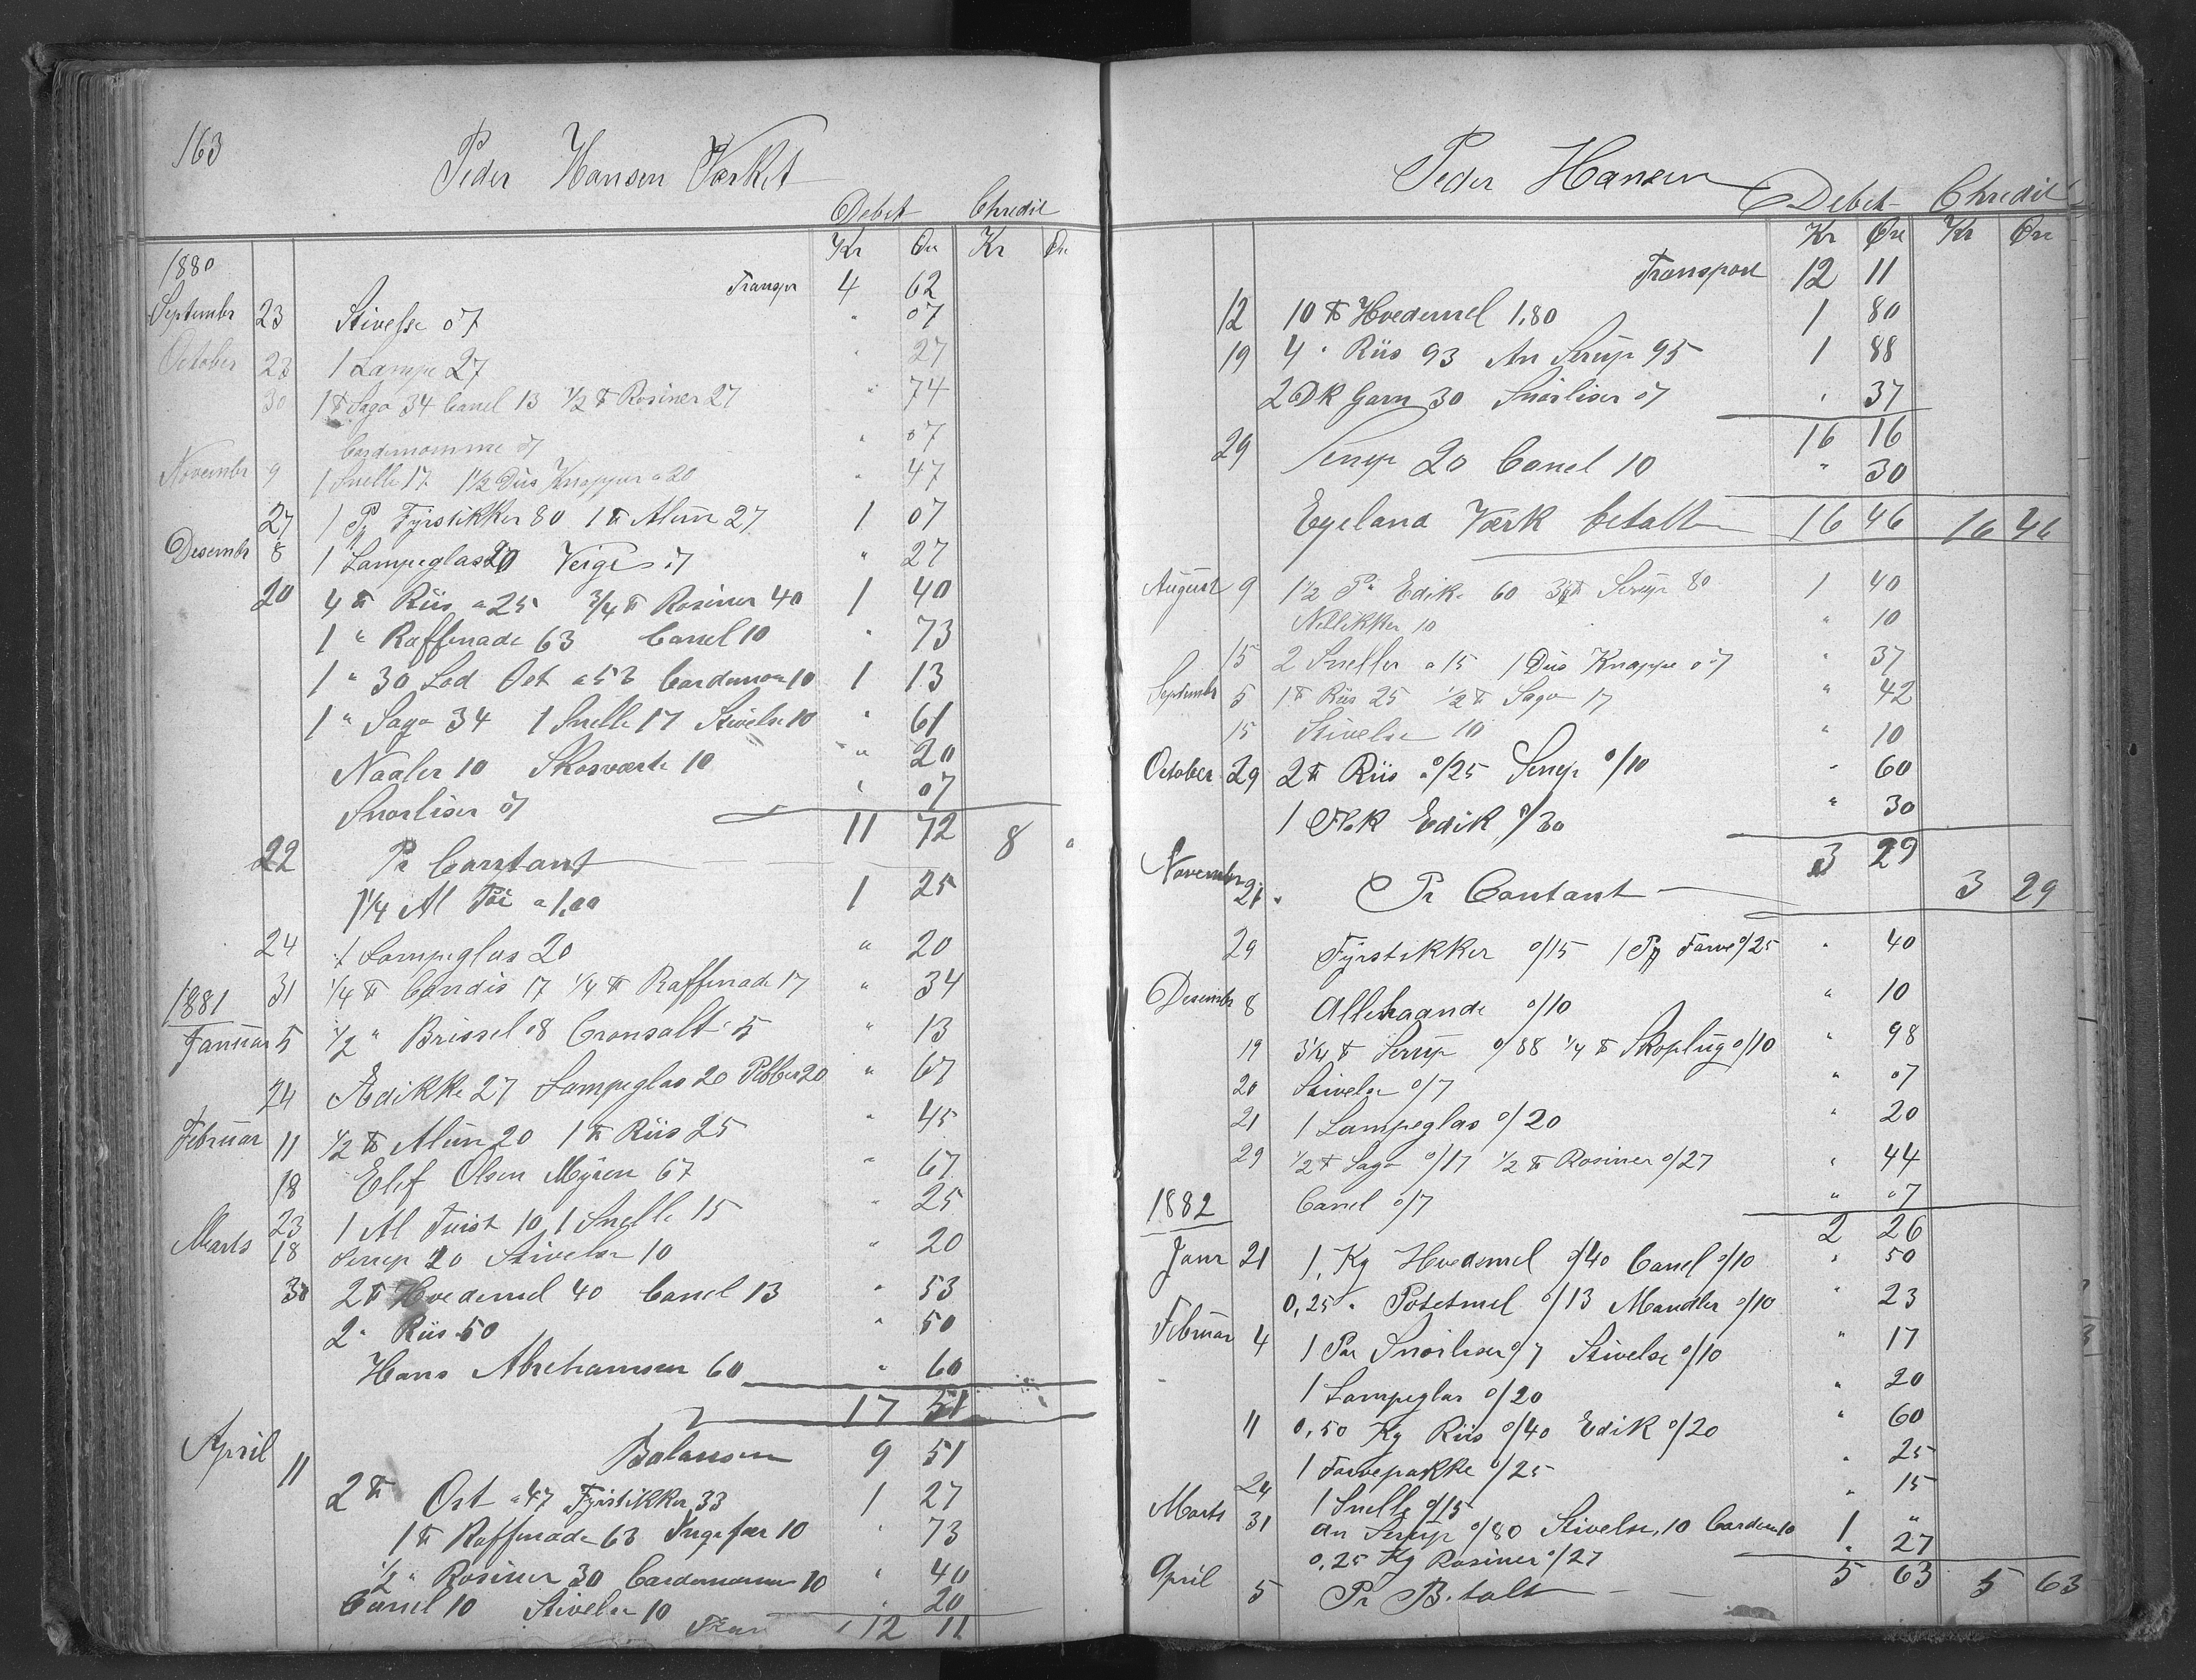 163
Peder Hansen Værket
Debet Chredit
Kr Øre Kr Øre
1880
Transpr 4 62
Septembr 23 Stivelse 07 " 07
October 23 1 Lampe 27 " 27
30 1 ℔ Sago 34 Canel 13 1/2 ℔ Rosiner 27 " 74
Cardemomme 07 " 07
November 9 1 Snelle 17 1 1/2 Dus Knapper a 20 " 47
27 1 Pk Fyrstikker 80 1 ℔ Alun 27 1 07
Desembr 8 1 Lampeglas 20 Veige 07 " 27
20 4 ℔ Riis a 25 3/4 ℔ Rosiner 40 1 40
1 " Raffenade 63 Canel 10 " 73
1 " 30 Lod Ost a 53 Cardemom 10 1 13
1 " Sago 34 1 Snelle 17 Stivelse 10 " 61
Naaler 10 Skosværte 10 " 20
Snorliser 07 " 07
11 72
22 Pr Contant 8 "
1 1/4 Al Töi a 1,00 1 25
24 1 Lampeglas 20 " 20
31 1/4 ℔ Candis 17 1/4 ℔ Raffenade 17 " 34
1881
Januar 5 1/2 " Brissel 08 Cronsalt 5 " 13
24 Ædikke 27 Lampeglas 20 Pebber 20 " 67
Februar 11 1/2 ℔ Alun 20 1 ℔ Riis 25 " 45
18 Elef Olsen Myren 67 " 67
23 1 Al Tuist 10 1 Snelle 15 " 25
Marts 18 Serup 20 Stivelse 10 " 20
30 2 ℔ Hvedemel 40 Canel 13 " 53
2 " Riis 50 " 50
Hans Abrehamsen 60 " 60
17 51
Balansen 9 51
April 11 2 ℔ Ost a 47 Fyrstikker 33 1 27
1 ℔ Raffenade 63 Ingefær 10 " 73
1/2 " Rosiner 30 Cardemomme 10 " 40
Canel 10 Stivelse 10 " 20
Tran 12 11
Peder Hansen
Debet Chredit
Kr Øre Kr Øre
Transport 12 11
12 10 ℔ Hvedemel 1,80 1 80
19 4 " Riis 93 An Serup 95 1 88
2 Dk Garn 30 Snorliser 07 " 37
16 16
29 Serup 20 Canel 10 " 30
Egeland Værk betalt 16 46 16 46
August 9 1 1/2 P " Edik 60 3 1/4 ℔ Serup 80 1 40
Nellikker 10 " 10
15 2 Sneller a 15 1 Dus Knappe 07 " 37
Septembr 5 1 ℔ Riis 25 1/2 ℔ Sago 17 " 42
15 Stivelse 10 " 10
October 29 2 ℔ Riis a 0/25 Serup 0/10 " 60
1 Flsk Edik 0/30 " 30
3 29
November 21 Pr Contant 3 29
29 Fyrstikker 0/15 1 Pk Farve 0/25 " 40
Desembr 8 Allehaande 0/10 " 10
19 3 1/4 ℔ Serup 0/88 1/4 ℔ Skoplug 0/10 " 98
20 Stivelse 0/7 " 07
21 1 Lampeglas 0/20 " 20
29 1/2 ℔ Sago 0/17 1/2 ℔ Rosiner 0/27 " 44
1882 Canel 0/7 " 07
2 26
Janr 21 1, Kg Hvedemel 0/40 Canel 0/10 " 50
0,25 " Potetmel 0/13 Mandler 0/10 " 23
Februar 4 1 Par Snorliser 0/7 Stivelse 0/10 " 17
1 Lampeglas 0/20 " 20
11 0,50 Kg Riis 0/40 Edik 0/20 " 60
1 Farvepakke 0/25 " 25
24 1 Snelle 0/15 " 15
Marts 31 an Serup 0/80 Stivelse, 10 Cardem 10 1 "
0,25 Kg Rosiner 0/27 " 27
5 63 5 63
April 5 Pr Betalt